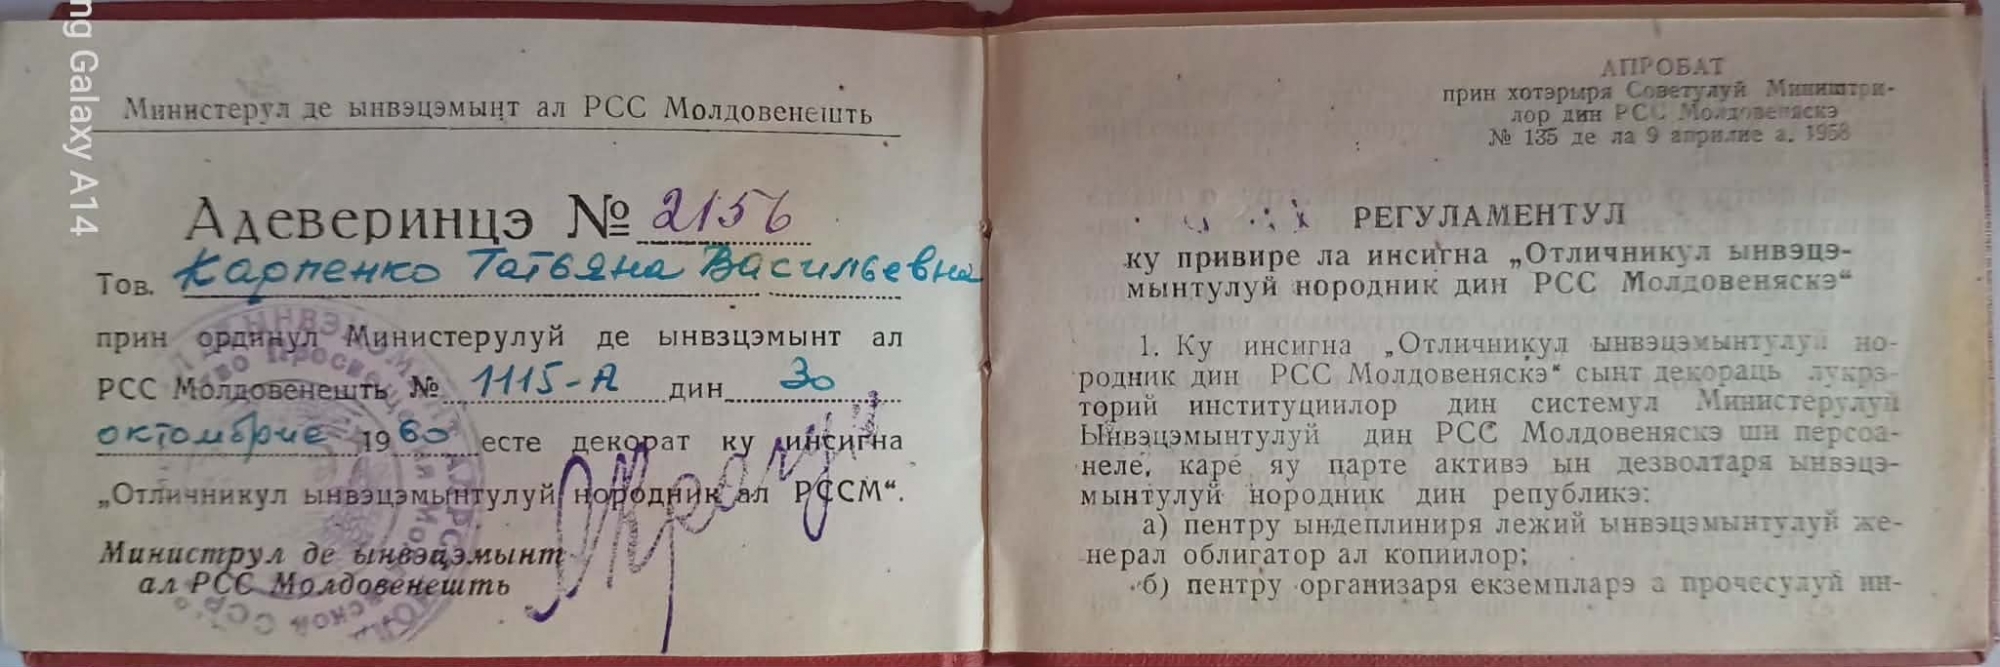 ng Galaxy A14
Министерул де ынвэцэмынт ал РСС Молдовенешть
Адеверинцэ № 2156
Тов. Карпенко Татьяна Васильевна
прин ординул Министерулуй де ынвэцэмынт ал
РСС Молдовенешть № 1115-А дин 30
октомбрие 1960 есте декорат ку инсигна
„Отличникул ынвэцэмынтулуй нородник ал РССМ“.
Министрул де ынвэцэмынт
ал РСС Молдовенешть
АПРОБАТ
прин хотэрыря Советулуй Миништри-
лор дин РСС Молдовеняскэ
№ 135 де ла 9 априлие а. 1958
РЕГУЛАМЕНТУЛ
ку привире ла инсигна „Отличникул ынвэцэ-
мынтулуй нородник дин РСС Молдовеняскэ“
1. Ку инсигна „Отличникул ынвэцэмынтулуй но-
родник дин РСС Молдовеняскэ“ сынт декораць лукрэ-
торий институциилор дин системул Министерулуй
Ынвэцэмынтулуй дин РСС Молдовеняскэ ши персоа-
неле, каре яу парте активэ ын дезволтаря ынвэцэ-
мынтулуй нородник дин републикэ:
а) пентру ындеплиниря лежий ынвэцэмынтулуй же-
нерал облигатор ал копиилор;
б) пентру организаря екземпларэ а прочесулуй ин-